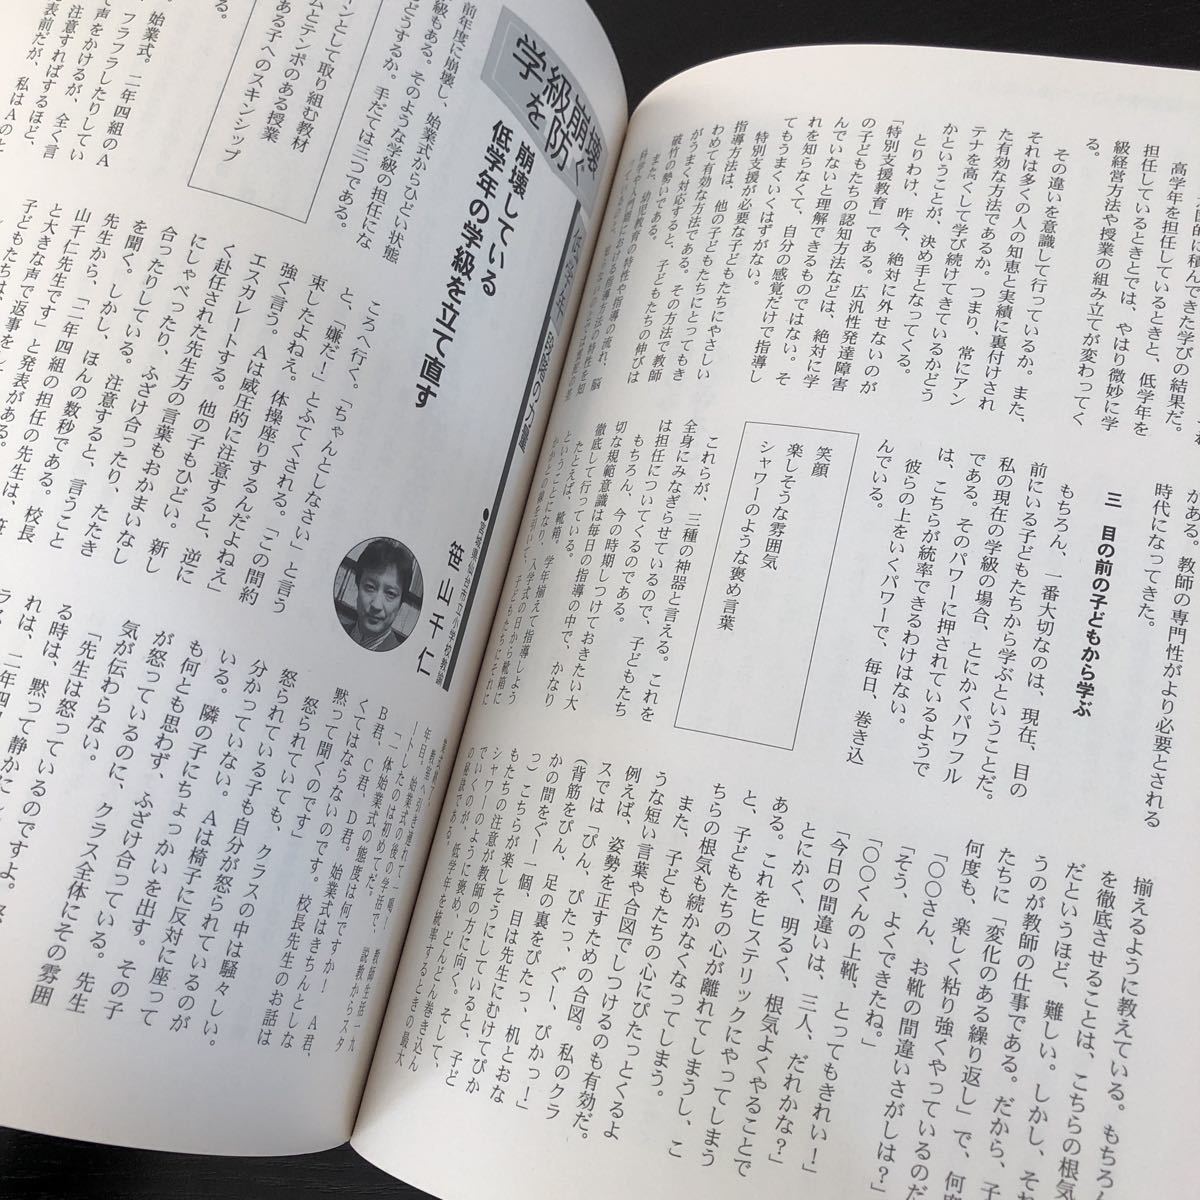 高学年を担任しているときと、低学年を
担任しているときとでは、やはり微妙に学
級経営方法や授業の組み立てが変わってく
る。
その違いを意識して行っているか。また、
それは多くの人の知恵と実績に裏付けされ
た有効な方法であるか。つまり、常にアン
テナを高くして学び続けてきているかどう
かということが、決め手となってくる。
とりわけ、昨今、絶対に外せないのが
「特別支援教育」である。広汎性発達障害
の子どもたちの認知方法などは、絶対に学
んでいないと理解できるものではない。そ
れを知らなくて、自分の感覚だけで指導し
てもうまくいくはずがない。
特別支援が必要な子どもたちにやさしい
指導方法は、他の子どもたちにとってもき
わめて有効な方法である。その方法で教師
がうまく対応すると、子どもたちの伸びは
破竹の勢いである。
また、幼児教育の特性や指導の流れ、脳
がある。教師の専門性がより必要とされる
時代になってきた。
三　目の前の子どもから学ぶ
もちろん、一番大切なのは、現在、目の
前にいる子どもたちから学ぶということだ。
私の現在の学級の場合、とにかくパワフル
である。そのパワーに押されているようで
は、こちらが統率できるわけはない。
彼らの上をいくパワーで、毎日、巻き込
んでいる。
笑顔
楽しそうな雰囲気
シャワーのような褒め言葉
これらが、三種の神器と言える。これを
全身にみなぎらせているので、子どもたち
は担任についてくるのである。
もちろん、今の時期しつけておきたい大
切な規範意識は毎日の指導の中で、かなり
徹底して行っている。
たとえば、靴箱。
学年揃えて指導しよう
ということになり、入学式の日から靴箱に
かかとの線を引いて、子どもたちにそれに
揃えるように教えている。もちろ
を徹底させることは、こちらの根気
だというほど、難しい。しかし、それ
うのが教師の仕事である。だから、子
たちに「変化のある繰り返し」で、何度
何度も、楽しく粘り強くやっているのだ
「〇〇さん、お靴の間違いさがしは？」
「そう、よくできたね。」
「〇〇くんの上靴、とってもきれい！」
「今日の間違いは、三人、だれかな？」
とにかく、明るく、根気よくやることで
ある。これをヒステリックにやってしまう
と、子どもたちの心が離れてしまうし、こ
ちらの根気も続かなくなってしまう。
また、子どもたちの心にぴたっとくるよ
うな短い言葉や合図でしつけるのも有効だ。
例えば、姿勢を正すための合図。私のクラ
スでは「ぴん、ぴたっ、ぐー、ぴかっ！」
（背筋をぴん、足の裏をぴたっ、机とおな
かの間をぐー一個、目は先生にむけてぴか
っ）こちらが楽しそうにしていると、子ど
もたちの注意が教師の方に向く。そして、
シャワーのように褒め、どんどん巻き込ん
でいくのが、低学年を統率するときの最大
の秘訣である。
学級崩壊を防ぐ
崩壊している
低学年の学級を立て直す
●宮城県仙台市立小学校教諭
笹山千仁
前年度に崩壊し、始業式からひどい状態
の学級もある。そのような学級の担任にな
ったらどうするか。手だては三つである。
取り組む教材
ムとテンポのある授業
ある子へのスキンシップ
始業式。二年四組のA
フラフラしたりしてい
て声をかけるが、全く言
注意すればするほど、
私はAのと
ころへ行く。「ちゃんとしなさい」と言う
と、「嫌だ！」とふてくされる。「この間約
束したよねえ。体操座りするんだよねえ」
強く言う。Aは威圧的に注意すると、逆に
エスカレートする。他の子もひどい。新し
く赴任された先生方の言葉もおかまいなし
にしゃべったり、ふざけ合ったり、たたき
合ったりしている。注意すると、言うこと
を聞く。しかし、ほんの数秒である。校長
先生から、「二年四組の担任の先生は、笹
山千仁先生です」と発表がある。
と大きな声で返事をし
子どもたちは、
業式終了。
教室へ引き連れて一喝！　教師生活一九
年目。始業式の後の学活で、説教からスタ
ートしたのは初めてだ。
「一体始業式の態度は何ですか！　A君、
B君、C君、D君。始業式はきちんとしな
くてはならないのです。校長先生のお話は
黙って聞くのです」
怒られていても、クラスの中は騒々しい。
怒られている子も自分が怒られているのが
分かっていない。Aは椅子に反対に座って
いる。隣の子にちょっかいを出す。その子
も何とも思わず、ふざけ合っている。先生
が怒っているのに、クラス全体にその雰囲
気が伝わらない。
「先生は怒っているのですよ。怒
る時は、黙って静かにし
れは、二年四